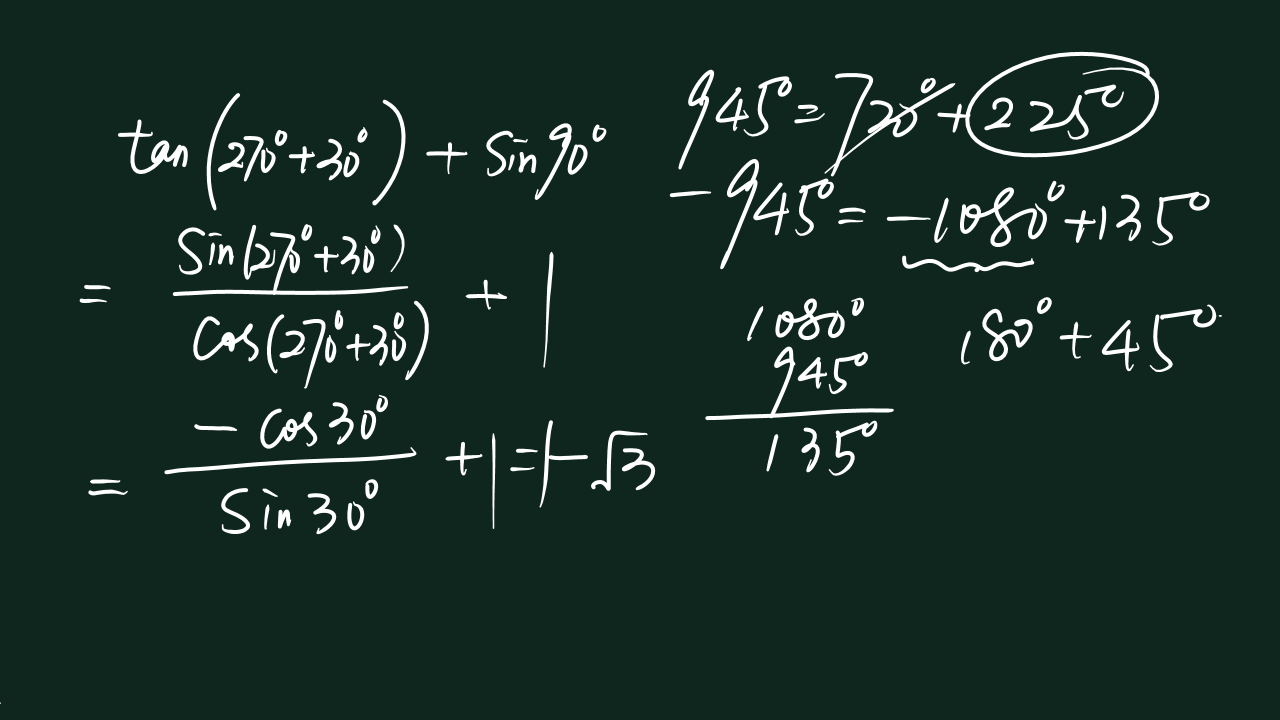 tan(270°+30°) + sin90°
= sin(270°+30°) / cos(270°+30°) + 1
= -cos30° / sin30° + 1 = 1-√3
945° = 720° + 225°
-945° = -1080° + 135°
1080°
945°
135°
180° + 45°